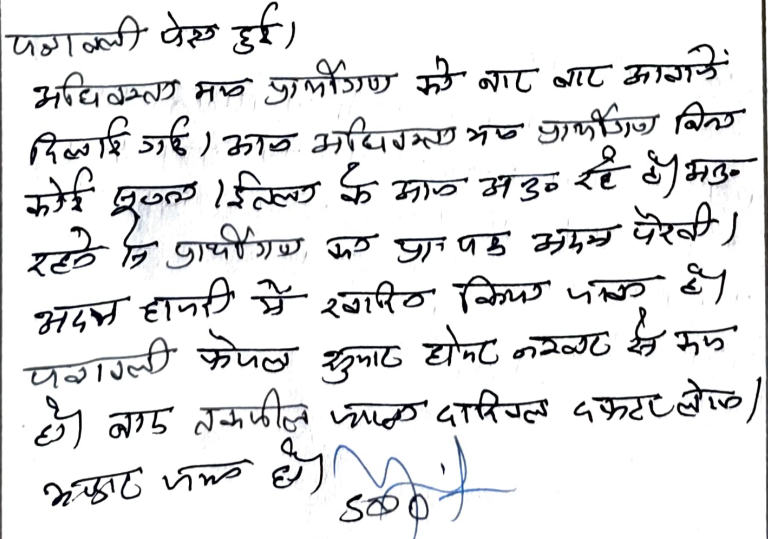 पत्रावली पेश हुई।
अधिवक्ता मय प्रार्थीगण को बार बार आवाजें
दिलाई गई। आज अधिवक्ता मय प्रार्थीगण बिना
कोई सूचना / ईतला के आज अनु० रहे है। अनु०
रहने से प्रार्थीगण का प्रा० पत्र अदम पैरवी।
अदम हाजरी में खारिज किया जाता है।
पत्रावली फैसल शुमार होकर नम्बर से कम
हो। बाद तकमील जाब्ता दाखिल दफ्तर होवे।
जाता है।
SDO